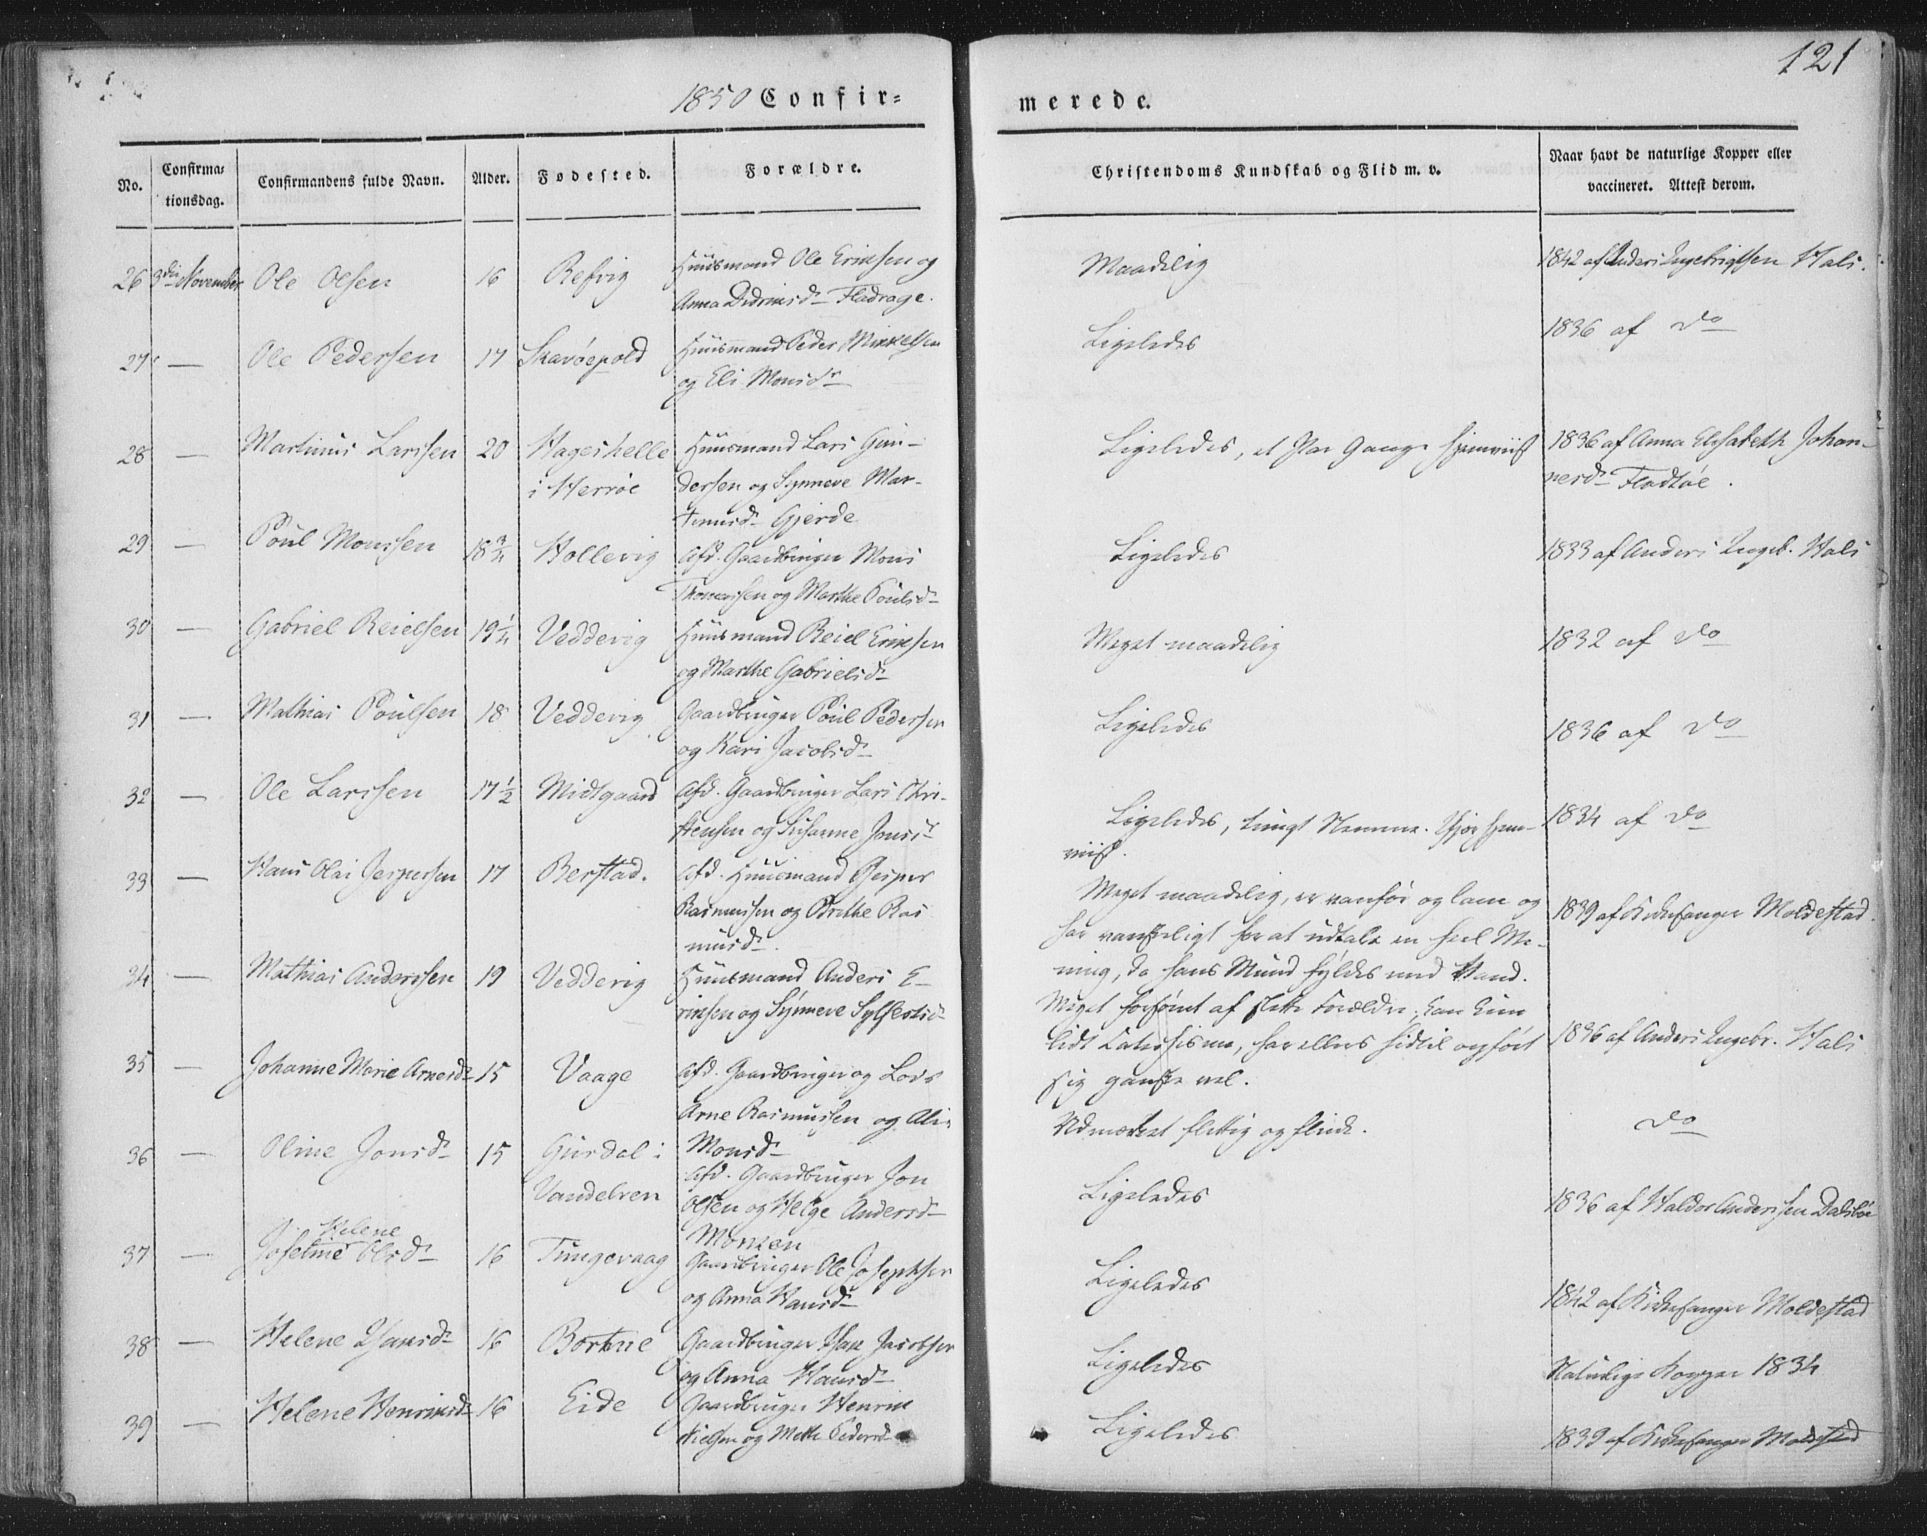 121
1850 Confir=
merede.
No. Confirma= tionsdag. Confirmandens fulde Navn. Alder. Fødested. Forældre. Christendoms Kundskab og Flid m. v. Naar havt de naturlige Kopper eller vaccineret. Attest derom.
26 3die November Ole Olsen 16 Refvig Huusmand Ole Ericksen og Maadelig 1842 af Anders Ingebrigtsen Hals.
Anna Didriksd. Fladrage.
27 — Ole Pedersen 17 Skavøepold Huusmand Peder Mikkelsen Ligeledes 1836 af do
og Eli Monsd.
28 — Martinus Larssen 20 Hageskelle Huusmand Lars Gun- Ligeledes, et Par Gange hjemviist 1836 af Anna Elisabeth Johan-
i Herrøe dersen og Synneve Mar- nesd. Fladtøe.
tinusd. Gjerde
29 — Poul Monssen 18 3/4 Hollevig Afd. Gaardbruger Mons Ligeledes 1833 af Anders Ingeb. Hals
Thomassen og Marthe Poulsd.
30 — Gabriel Reielsen 19 1/4 Vedderig Huusmand Reiel Ericksen Meget maadelig 1832 af do
og Marthe Gabrielsd.
31 — Mathias Poulsen 18 Veddevig Gaardbruger Poul Pedersen Ligeledes 1836 af do
og Kari Jacobsd.
32 — Ole Larssen 17 1/2 Midtgaard Afd. Gaardbruger Lars Chri- Ligeledes, tungt Nemme. Ifjor hjem- 1834 af do
stensen og Susanne Jonsd. viist.
33 — Hans Olai Jespersen 17 Berstad. Afd. Huusmand Jesper Meget maadelig, er vanfør og lam og 1839 af Kirkesanger Moldestad.
Rasmussen og Brethe Ras har vanskeligt for at udtale en heel Me-
musd. ning, da hans Mund fyldes med Vand.
34 — Mathias Anderssen 19 Vedderig Huusmand Anders E- Meget forsømt af slette Forældre; kan kun 1836 af Anders Ingebr. Hals
ricksen og Synneve Sylfestsd. lidt Catechisme, har ellers hidtil opført
sig ganske vel.
35 — Johanne Marie Arnesd. 15 Vaage Afd. Gaardbruger og Lods Udmærket flittig og flink. do
Arne Rasmussen og Ali
Monsd.
36 — Oline Jonsd. 15 Gursdal i Afd. Gaardbruger Jon Ligeledes 1836 af Haldor Andersen Dalsbøe
Vandelven Olsen og Helge Andersd.
Monsen
37 — Josefine Helene Olsd. 16 Tungevaag Gaardbruger Ole Josephsen Ligeledes 1842 af Kirkesanger Moldestad
og Anna Hansd.
38 — Helene Isaksd. 16 Bortne Gaardbruger Isak Jacobsen Ligeledes Naturlige Kopper 1834
og Anna Hansd.
39 — Helene Henriksd. 16 Eide Gaardbruger Henrik Ligeledes 1839 af Kirkesanger Moldestad
Nielsen og Mette Pedersd.